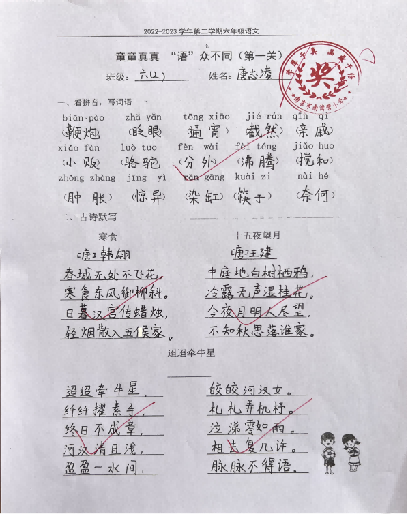 2022-2023学年第二学期六年级语文
童童真真 “语”众不同（第一关）
班级： 六(2) 姓名：
一、看拼音，写词语
biān pào zhǎ yǎn tōng xiāo jié rán qīn qi
(鞭炮) (眨眼) (通宵) (截然) (亲戚)
xiǎo fàn luò tuo fèn wài fèi téng jiǎo huo
(小贩) (骆驼) (分外) (沸腾) (搅和)
zhǒng zhàng jīng yì rǎn gāng kuài zi nài hé
(肿胀) (惊异) (染缸) (筷子) (奈何)
二、古诗默写
寒食 十五夜望月
唐 韩翃 唐 王建
春城无处不飞花， 中庭地白树栖鸦，
寒食东风御柳斜。 冷露无声湿桂花。
日暮汉宫传蜡烛， 今夜月明人尽望，
轻烟散入五侯家。 不知秋思落谁家。
迢迢牵牛星
迢迢牵牛星， 皎皎河汉女。
纤纤擢素手， 札札弄机杼。
终日不成章， 泣涕零如雨。
河汉清且浅， 相去复几许。
盈盈一水间， 脉脉不得语。
奖